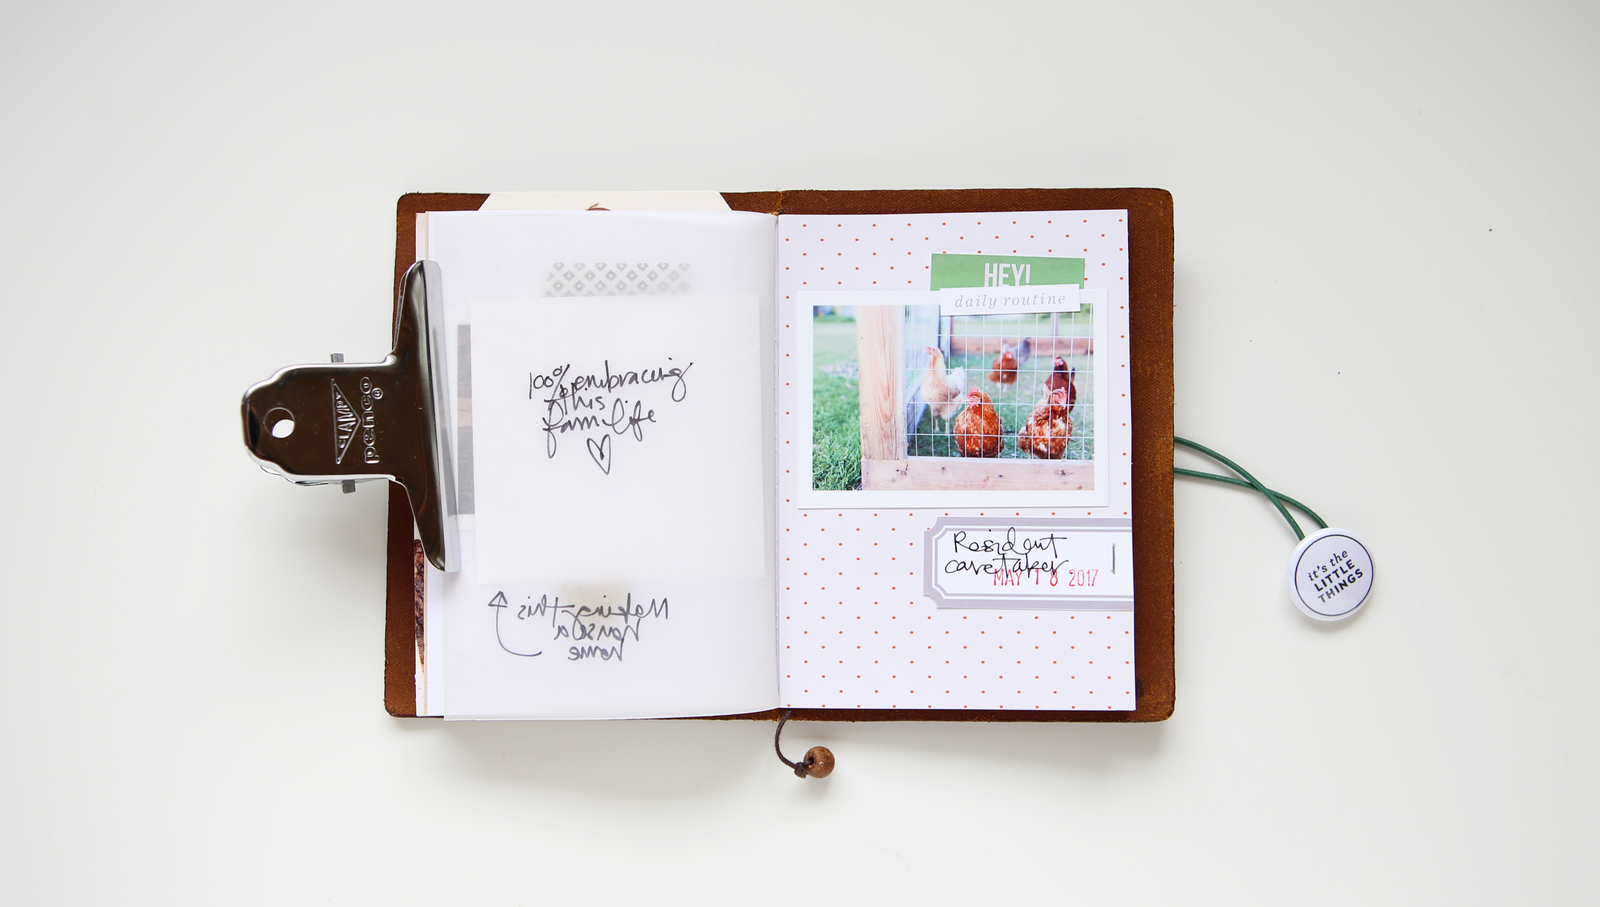 CLAMPY
penco®
100% embracing
this
fam life
Making this
house a
home
HEY!
daily routine
Resident
caretaker
MAY 18 2017
it's the
LITTLE
THINGS